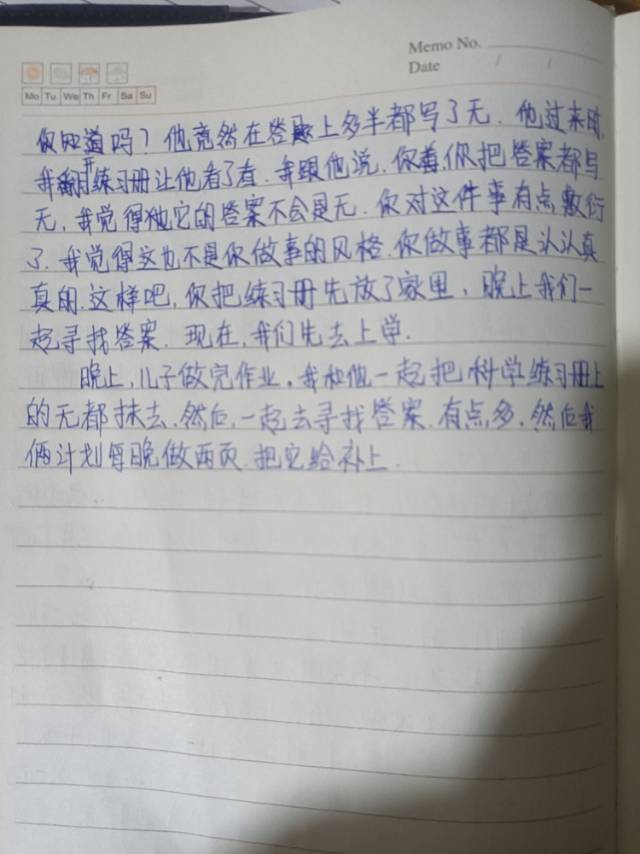 Memo No.
Date / /
Mo Tu We Th Fr Sa Su
你知道吗？他竟然在答题上多半都写了无．他过来时，
我翻开练习册让他看了看．我跟他说，你看，你把答案都写
无，我觉得它的答案不会是无．你对这件事有点敷衍
了．我觉得这也不是你做事的风格．你做事都是认认真
真的．这样吧，你把练习册先放了家里，晚上我们一
起寻找答案．现在，我们先去上学．
晚上，儿子做完作业，我和他一起把科学练习册上
的无都抹去．然后，一起去寻找答案．有点多，然后我
俩计划每晚做两页．把它给补上．